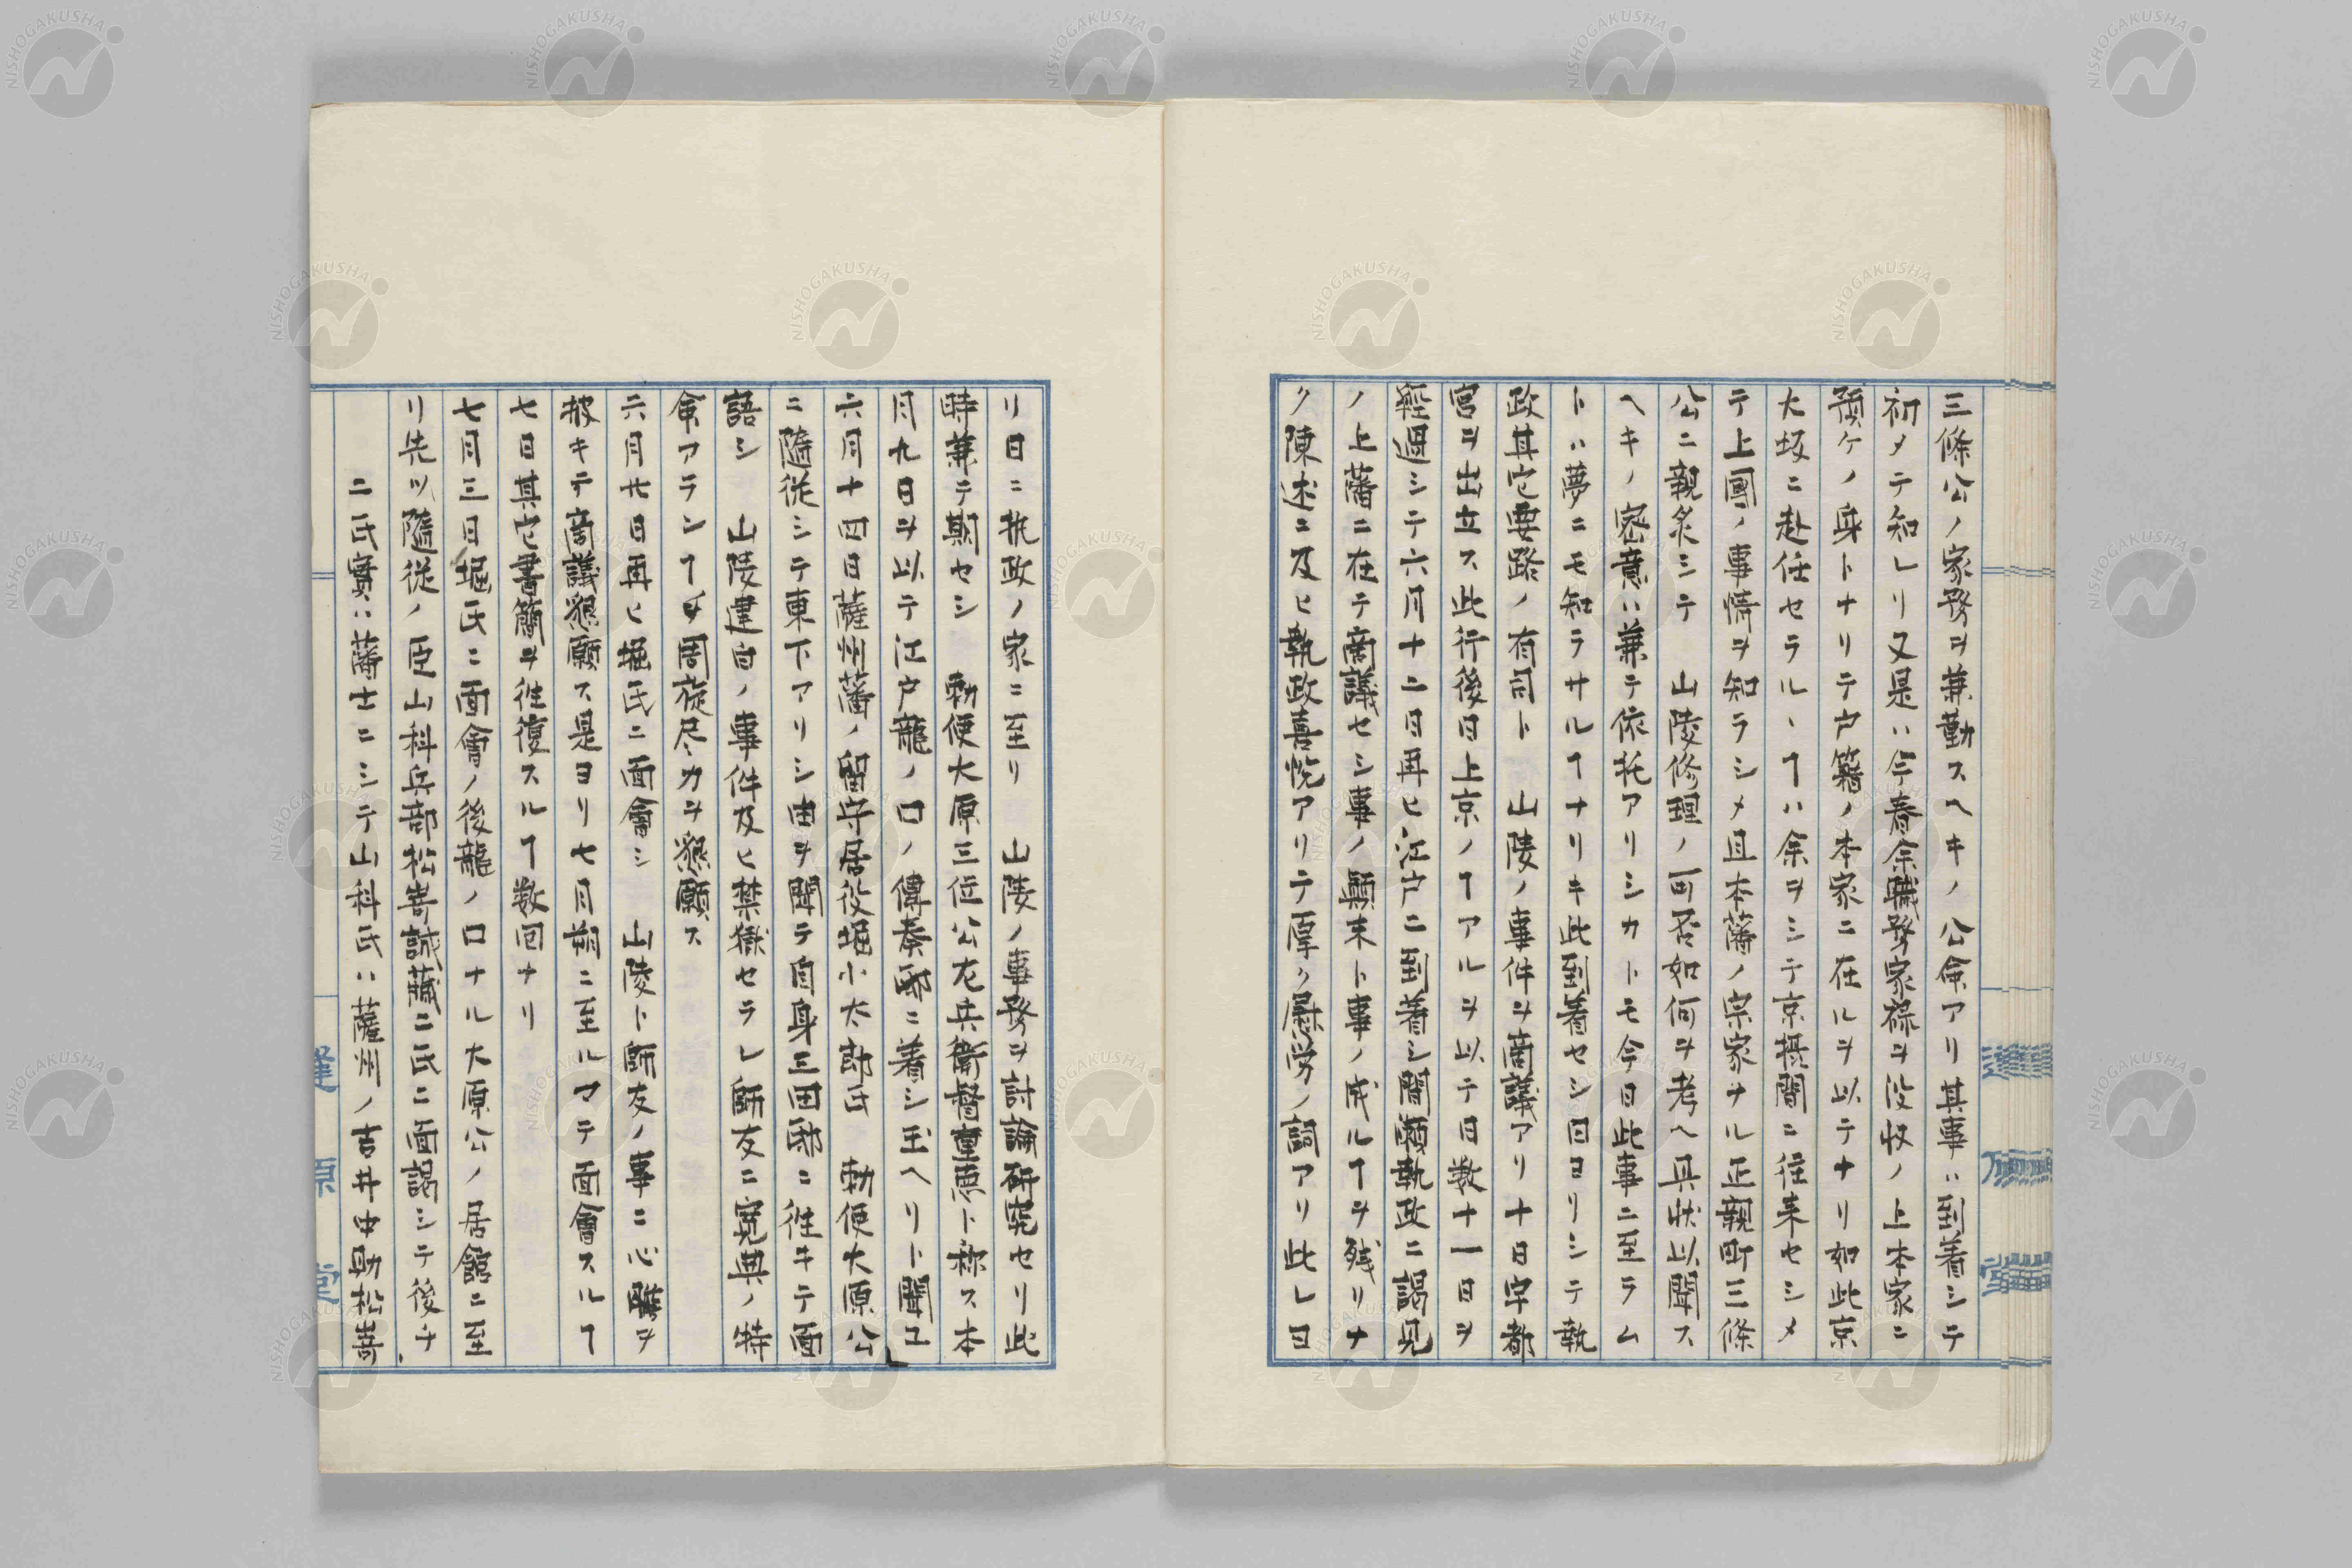 三條公ノ家務ヲ兼勤スヘキノ公命アリ其事ハ到着シテ
初メテ知レリ又是ハ今春余職務家祿ヲ没収ノ上本家ニ
預ケノ身トナリテ戸籍ノ本家ニ在ルヲ以テナリ如此京
大坂ニ赴任セラルヽヿハ余ヲシテ京摂間ニ往来セシメ
テ上國ノ事情ヲ知ラシメ且本藩ノ宗家ナル正親町三條
公ニ親炙シテ 山陵修理ノ可否如何ヲ考ヘ具状以聞ス
ヘキノ密意ハ兼テ依托アリシカトモ今日此事ニ至ラム
トハ夢ニモ知ラサルヿナリキ此到着セシ日ヨリシテ執
政其它要路ノ有司ト 山陵ノ事件ヲ商議アリ十日宇都
宮ヲ出立ス此行後日上京ノヿアルヲ以テ日数十一日ヲ
経過シテ六月十二日再ヒ江戸ニ到着シ間瀬執政ニ謁見
ノ上藩ニ在テ商議セシ事ノ顛末ト事ノ成ルヿヲ残リナ
ク陳述ニ及ヒ執政喜悦アリテ厚ク慰労ノ詞アリ此レヨ
リ日ニ執政ノ家ニ至リ 山陵ノ事務ヲ討論研究セリ此
時兼テ期セシ 勅使大原三位公左兵衛督重徳ト称ス本
月九日ヲ以テ江戸龍ノ口ノ傳奏邸ニ着シ玉ヘリト聞ユ
六月十四日薩州藩ノ留守居役堀小太郎氏 勅使大原公
ニ隨従シテ東下アリシ由ヲ聞テ自身三田邸ニ徃キテ面
語シ 山陵建白ノ事件及ヒ禁獄セラレ師友ニ寛典ノ特
命アランヿヲ周旋尽力ヲ懇願ス
六月廿日再ヒ堀氏ニ面會シ 山陵ト師友ノ事ニ心膓ヲ
披キテ商議懇願ス是ヨリ七月朔ニ至ルマテ面會スルヿ
七日其它書簡ヲ徃復スルヿ数回ナリ
七月三日堀氏ニ面會ノ後龍ノ口ナル大原公ノ居舘ニ至
リ先ツ隨従ノ臣山科兵部松嵜誠藏二氏ニ面謁シテ後チ
二氏實ハ藩士ニシテ山科氏ハ薩州ノ吉井中助松嵜
原 堂